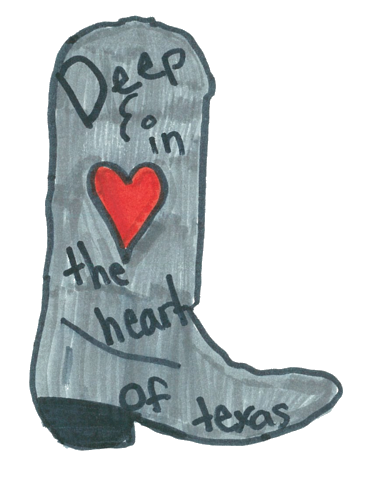 Deep
& in
the
heart
of texas